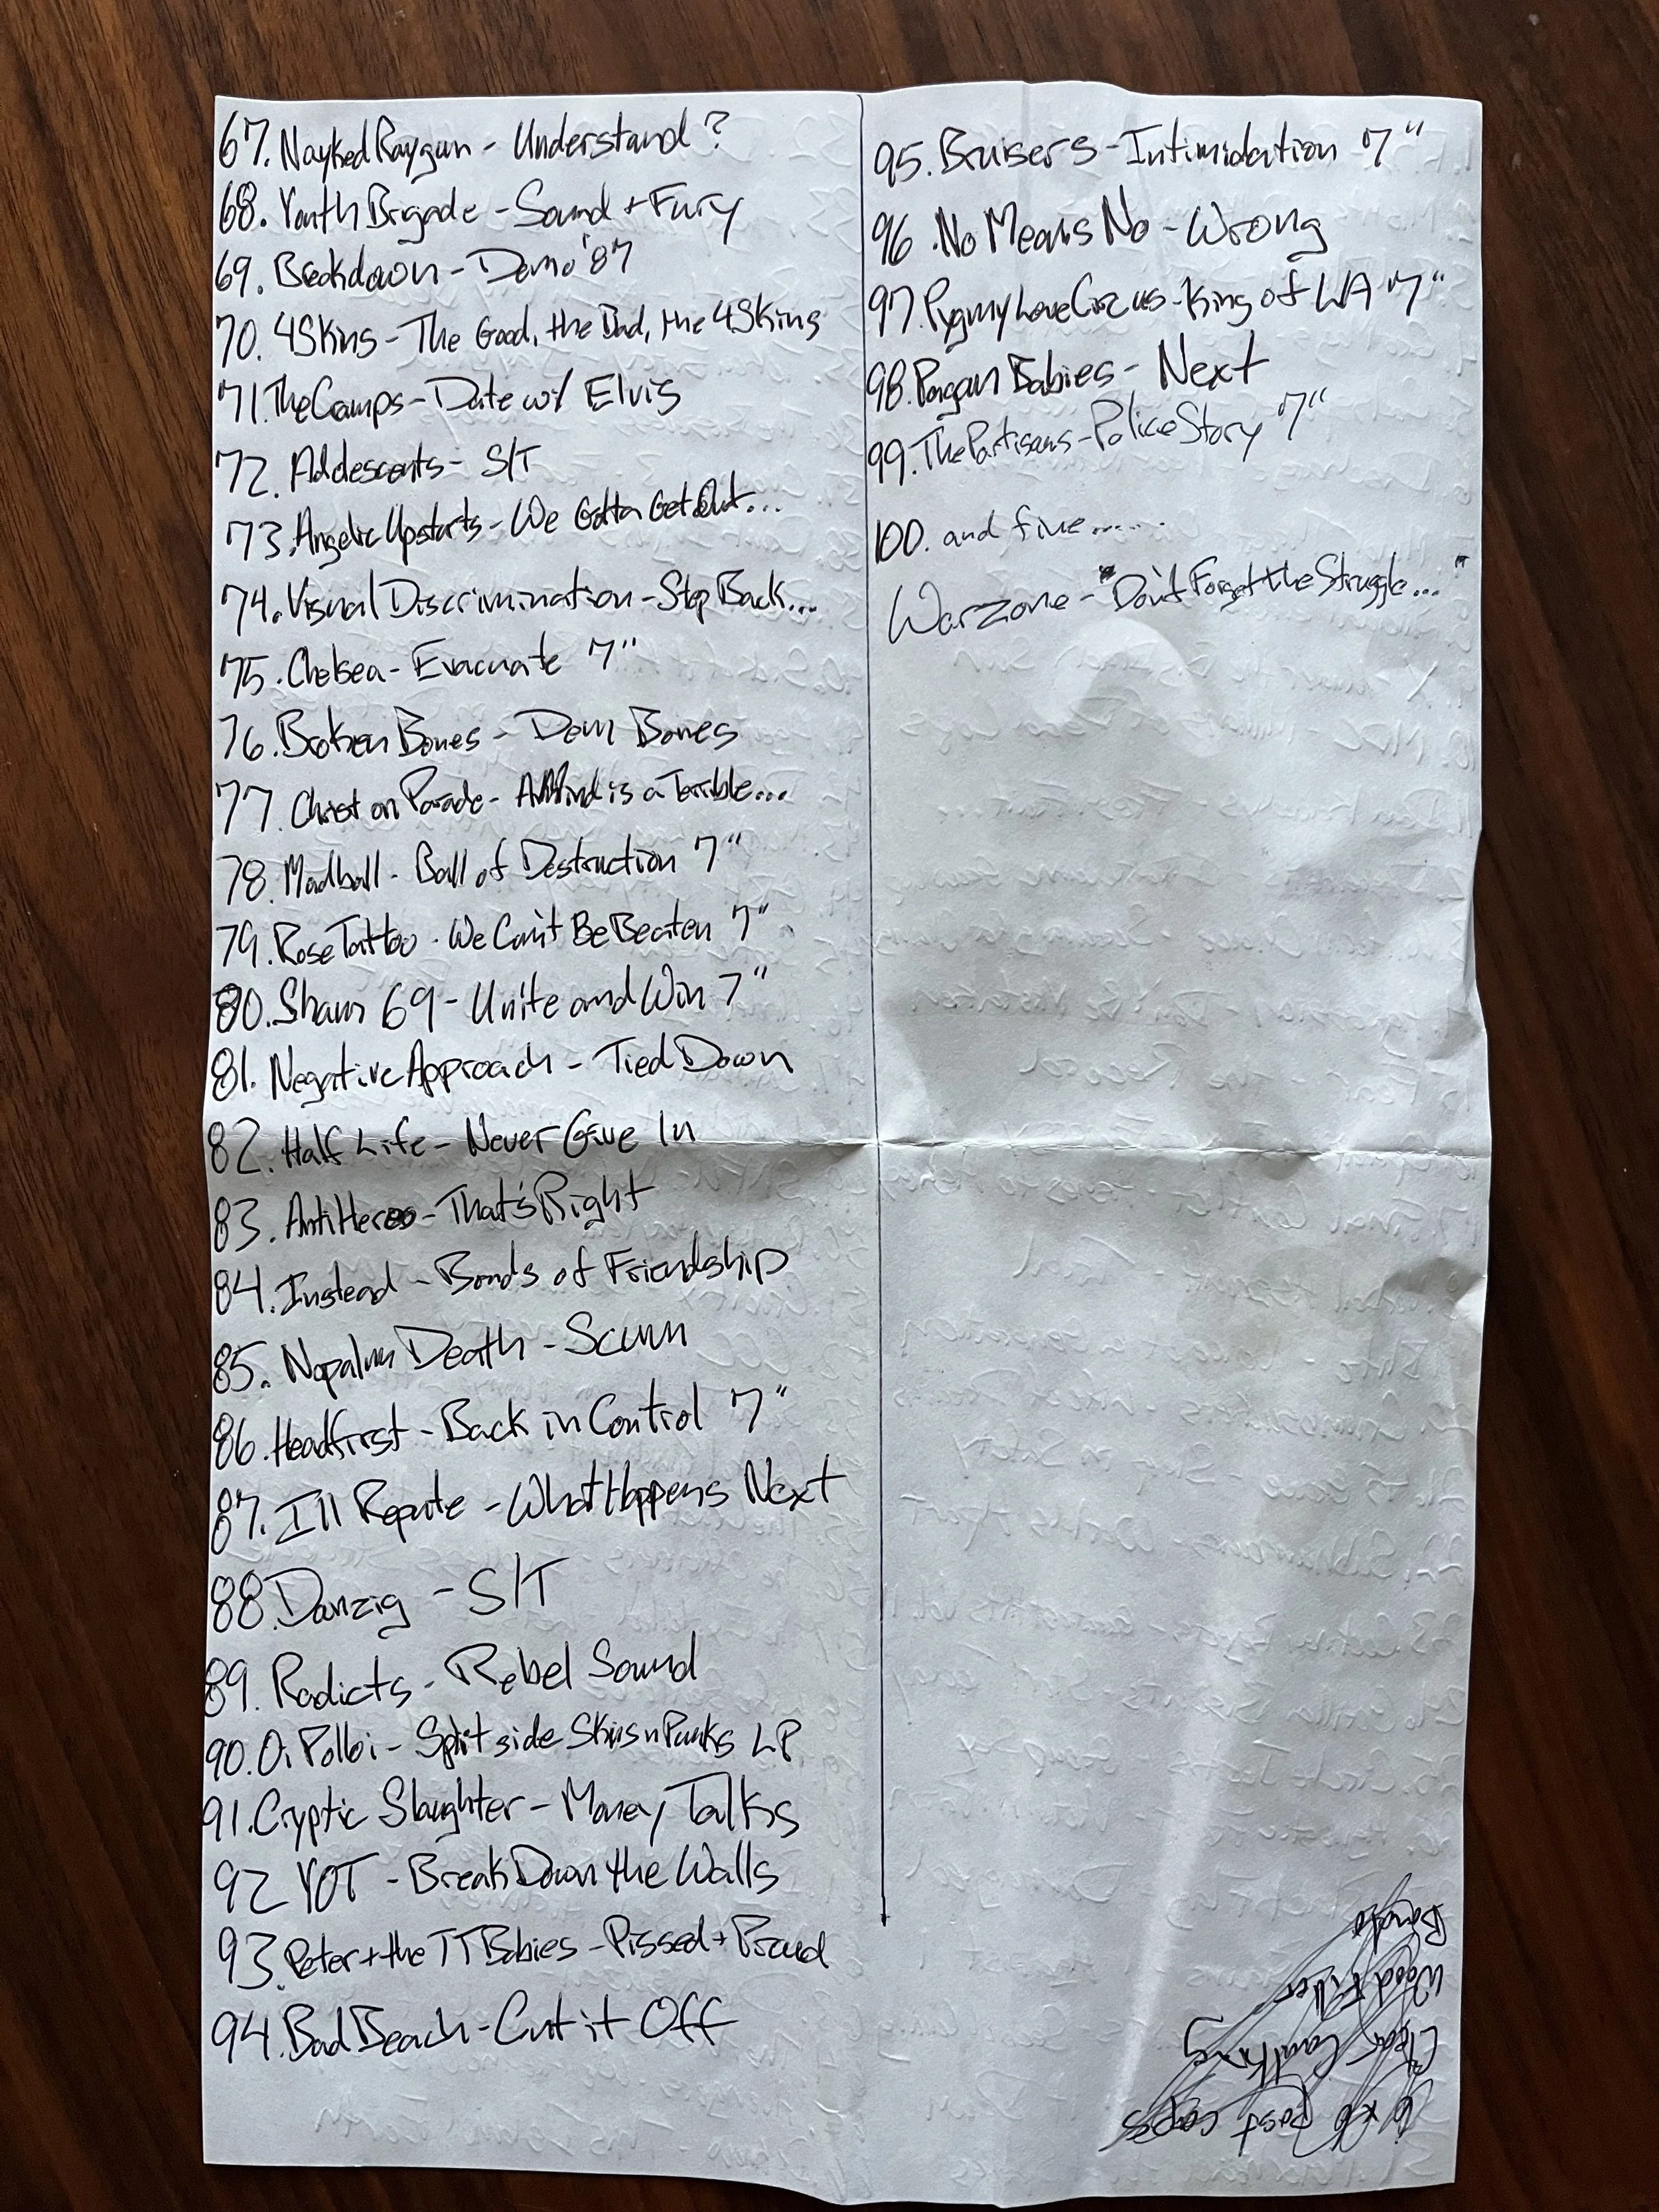 67. Nayked Raygun - Understand?
68. Youth Brigade - Sound + Fury
69. Breakdown - Demo '87
70. 4Skins - The Good, the Bad, the 4Skins
71. The Cramps - Date w/ Elvis
72. Adolescents - S/T
73. Angelic Upstarts - We Gotta Get Out...
74. Visual Discrimination - Step Back...
75. Chelsea - Evacuate 7"
76. Broken Bones - Dem Bones
77. Christ on Parade - A Mind is a Terrible...
78. Madball - Ball of Destruction 7"
79. Rose Tattoo - We Can't Be Beaten 7"
80. Sham 69 - Unite and Win 7"
81. Negative Approach - Tied Down
82. Half Life - Never Give In
83. AntiHeros - That's Right
84. Instead - Bonds of Friendship
85. Napalm Death - Scum
86. Headfirst - Back in Control 7"
87. Ill Repute - What Happens Next
88. Danzig - S/T
89. Radicts - Rebel Sound
90. Oi Polloi - Split side Skins n Punks LP
91. Cryptic Slaughter - Money Talks
92 YOT - Break Down the Walls
93. Peter + the TT Babies - Pissed + Proud
94. Bad Beach - Cut it Off
95. Bruisers - Intimidation 7"
96. No Means No - Wrong
97. Pygmy Love Circus - King of LA 7"
98. Pagan Babies - Next
99. The Partisans - Police Story 7"
100. and five.......
Warzone - "Don't Forget the Struggle..."
6x6 Post caps
Clear Caulking
Wood Filler